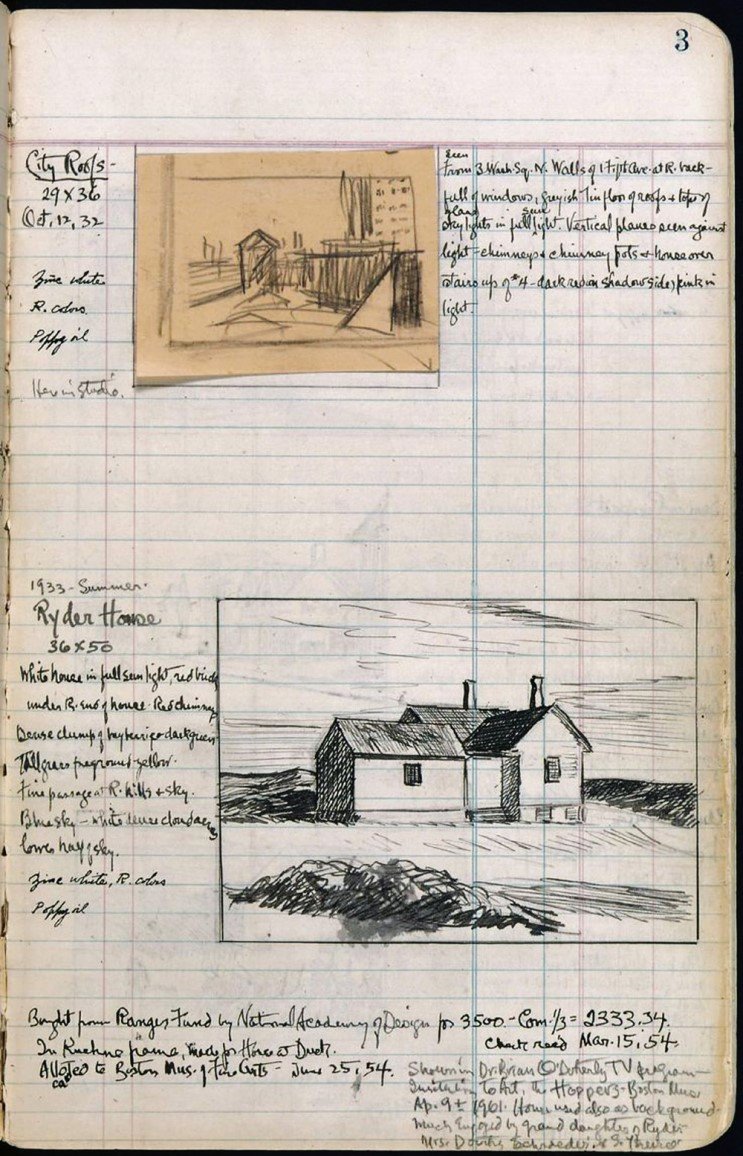 3
City Roofs -
29 x 36
Oct, 12, 32
Zinc white
R. colors
Poppy oil
Here in Studio.
seen
from 3 Wash. Sq. N. Walls of 1 Fifth Ave. at R. back -
full of windows, greyish floor of roofs + tops of
sky lights in full light. Vertical planes seen against
light - chimneys + chimney pots + house over
stairs up of #4 - dark red in shadow side, pink in
light.
1933 - Summer.
Ryder House
36 x 50
White house in full sun light, red brick
under R. end of house. Red chimney
Dense clump of dark green
Tall grass foreground yellow.
Fine passage at R. hills + sky.
Blue sky - white dense clouds across
lower half of sky.
Zinc white, R. colors
Poppy oil
Bought from Ranger Fund by National Academy of Design for 3500. - Com. 1/3 = 2333.34.
check rec'd Mar. 15, 54.
In frame, made for House at Dusk.
Alloted to Boston Mus. of Fine Arts - June 25, 54.
Shown in Dr. Brian O'Doherty TV program -
Invitation to Art, the Hoppers - Boston Mus.
Ap. 9 1961. House used also as background.
Much enjoyed by grand daughter of Ryder
Mrs.